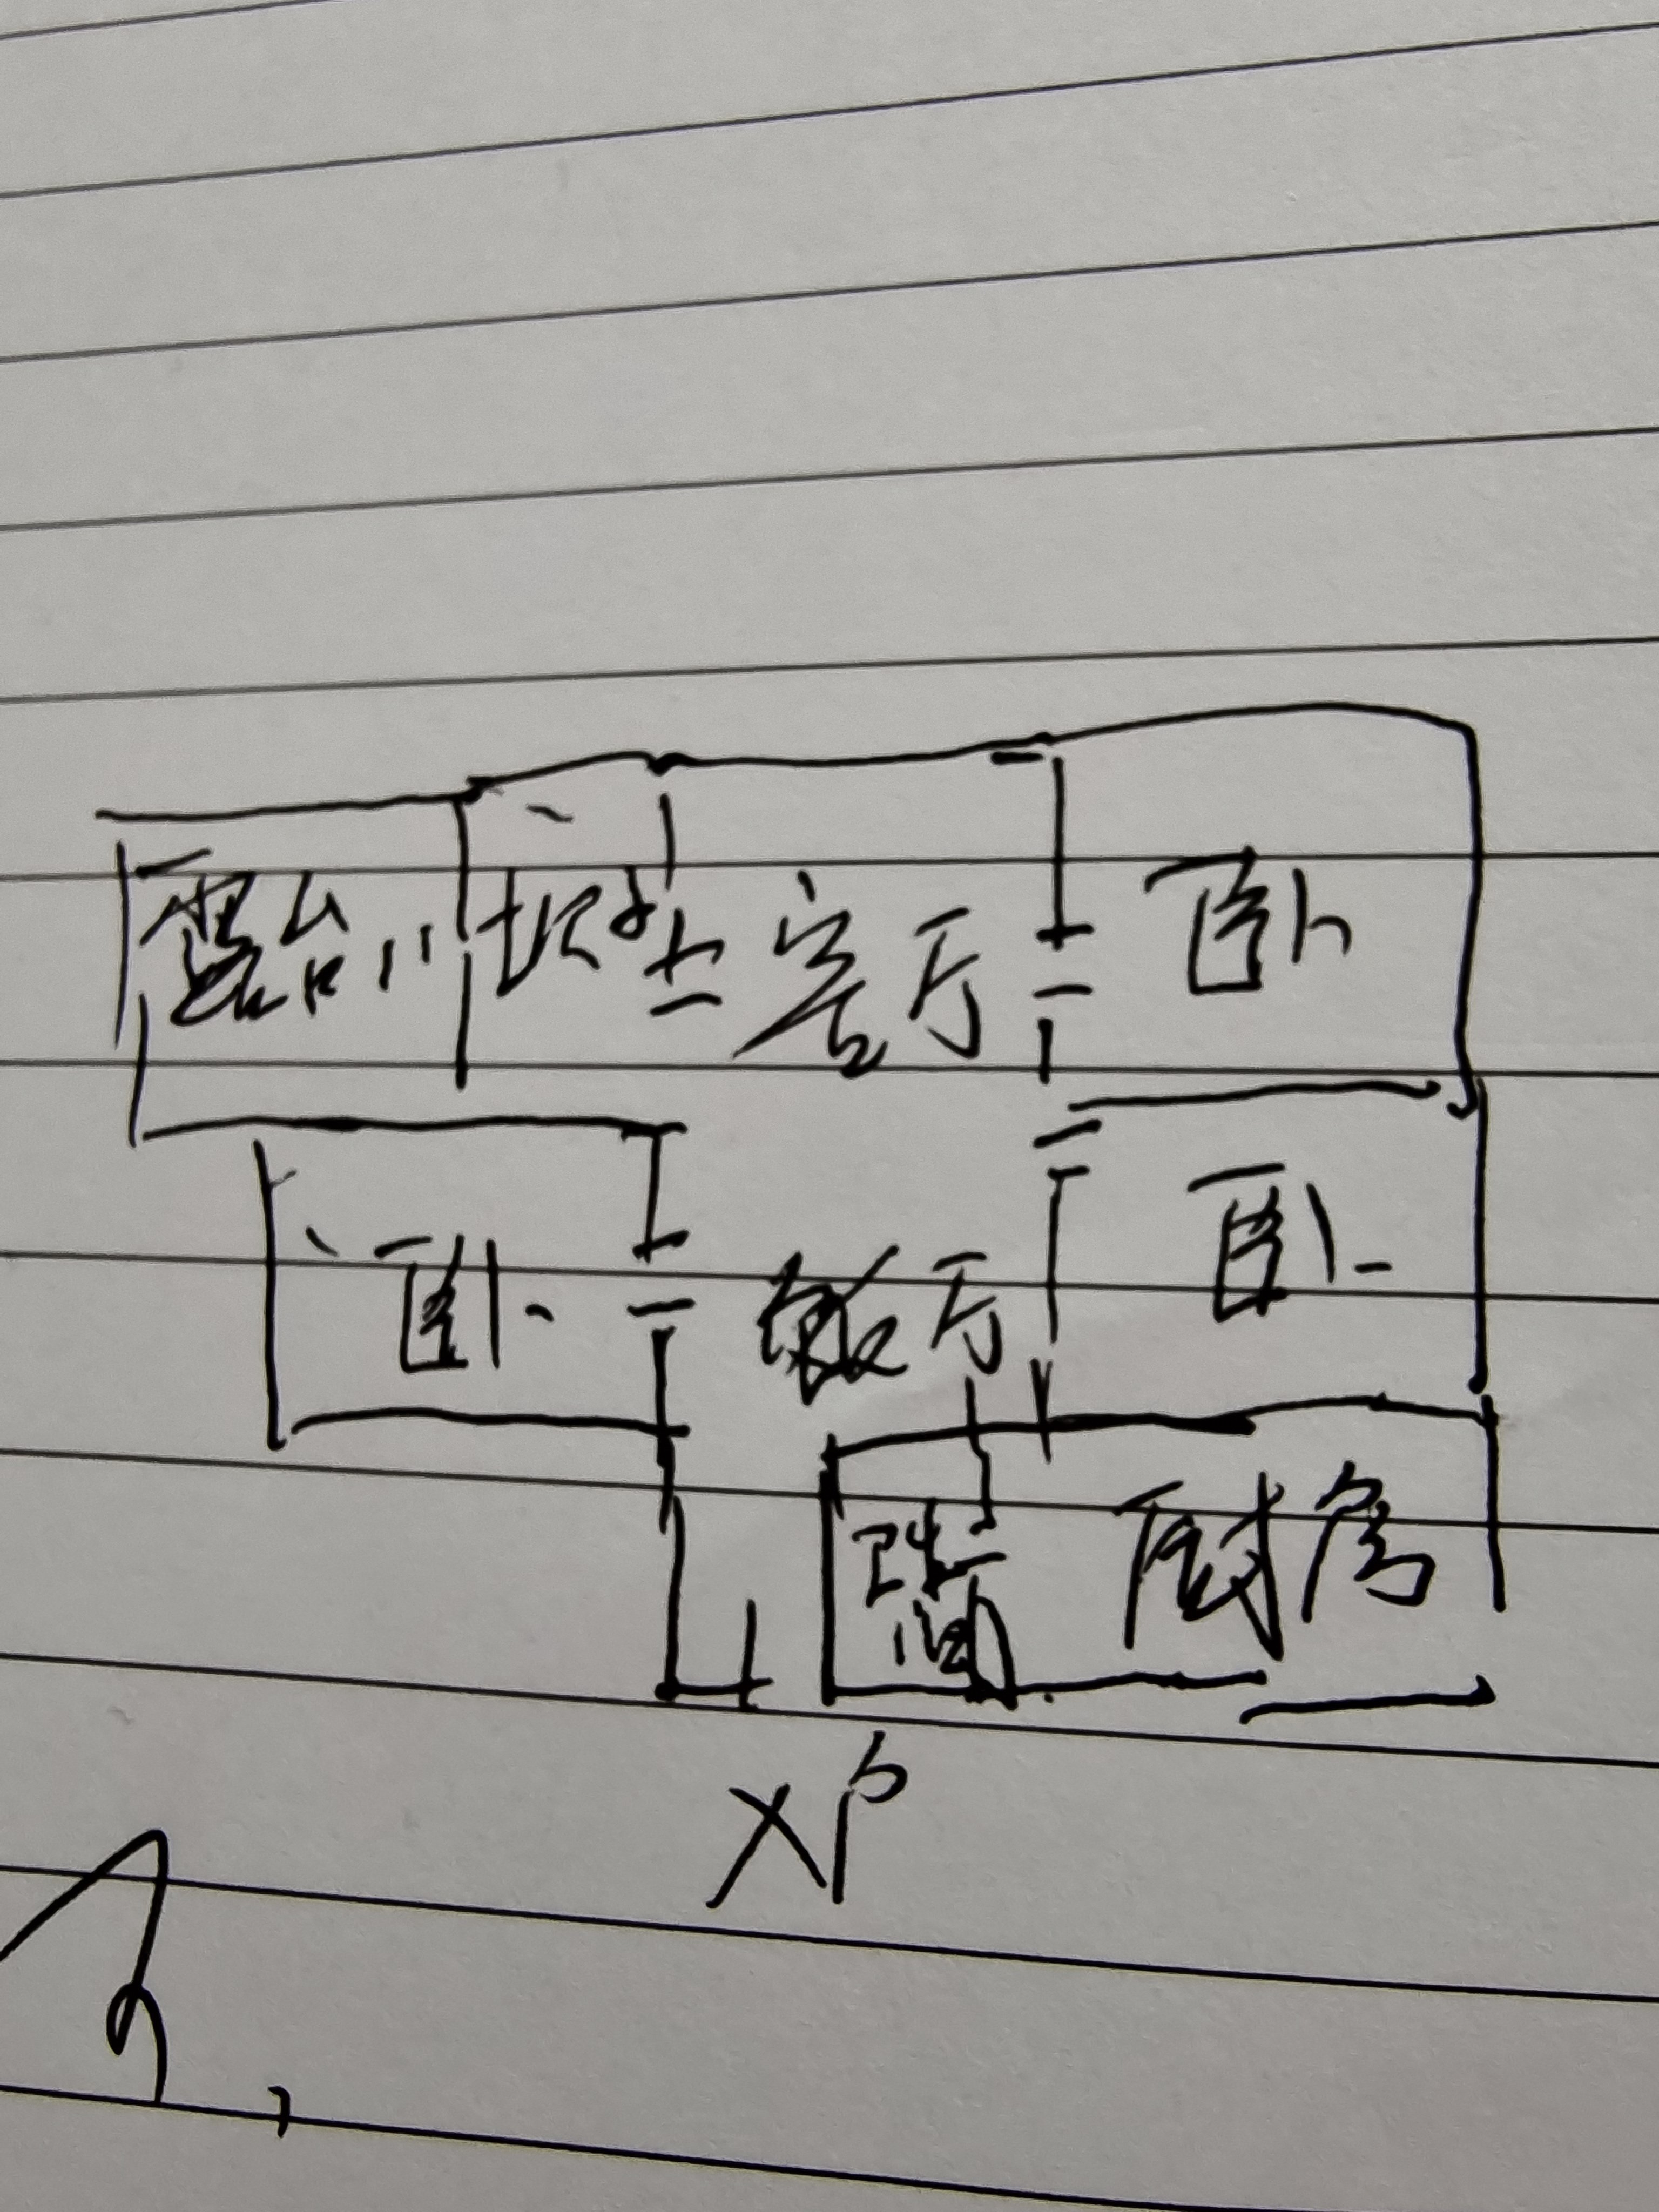 露台 客厅 卧
卧 饭厅 卧
厨房
入户